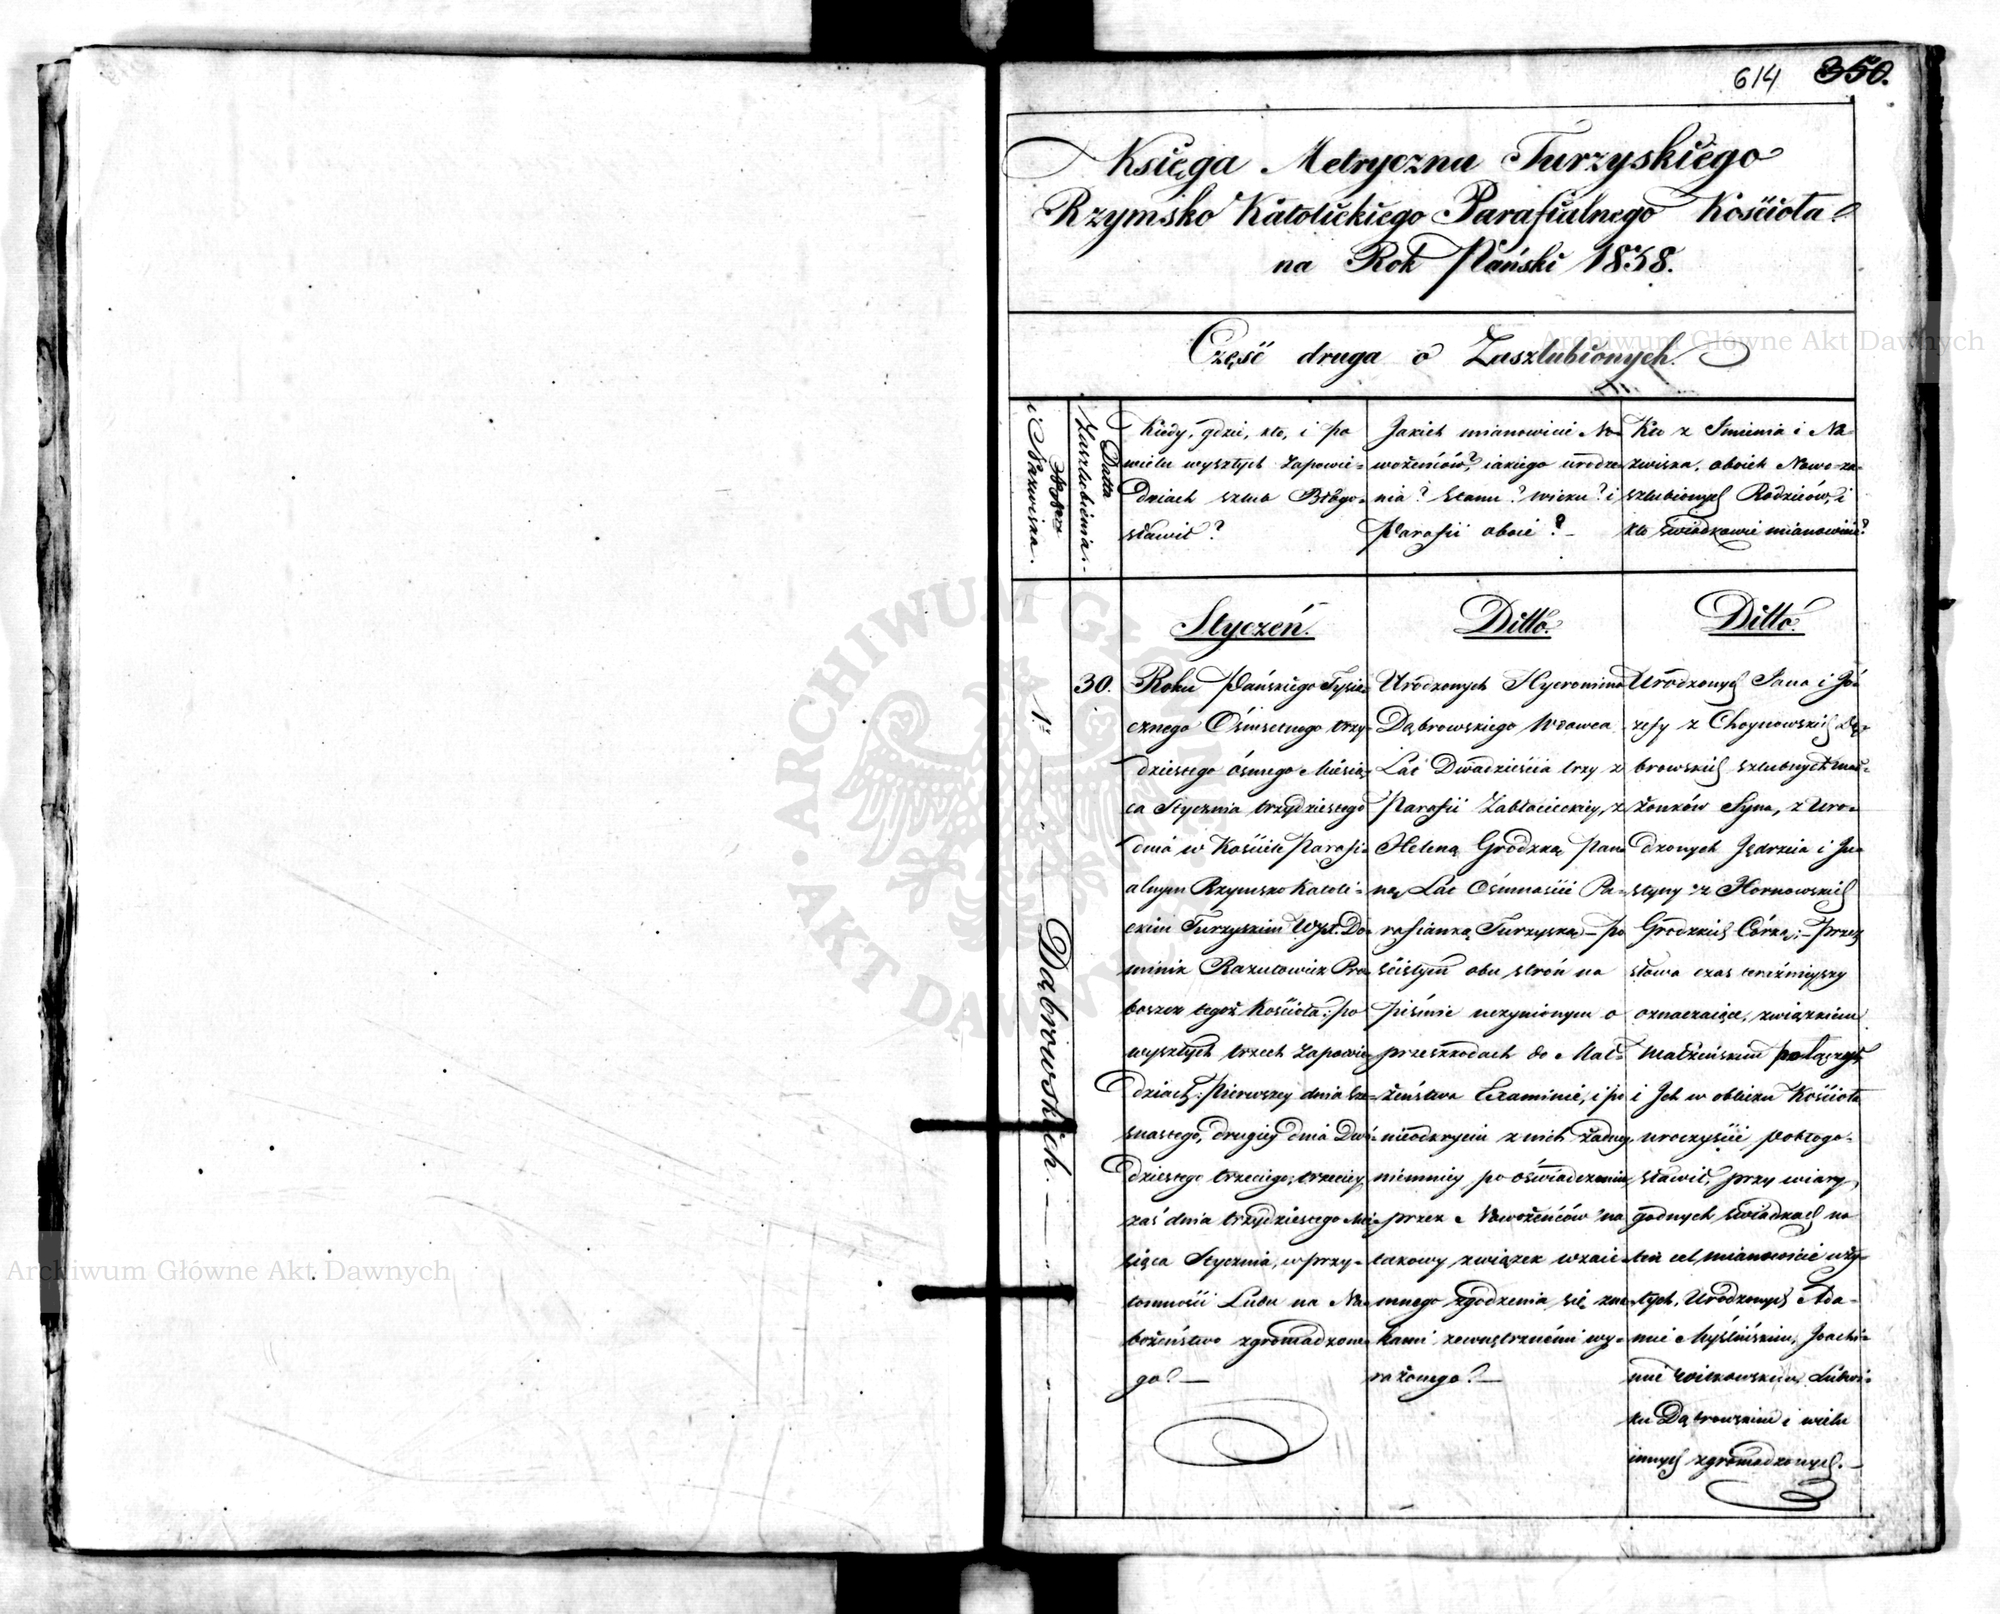 614 350.
Księga Metryczna Turzyskiego
Rzymsko Katolickiego Parafialnego Kościoła
na Rok Pański 1838.
Część druga o Zaszlubionych.
Numer
i Nazwiska.
Datta
Zaszlubienia.
Kiedy, gdzie, kto, i po
wielu wyszłych zapowie-
dziach szlub Błogo-
sławił?
Jakich mianowicie No-
wożeńców? iakiego urodze-
nia? stanu? wieku? i
Parafii oboie?
Kto z Imienia i Na-
zwiska, oboich Nowo-za-
szlubionych Rodziców, i
kto świadkowie mianowicie?
N. 1.
Dąbrowskich.
30.
Styczeń.
Roku Pańskiego Tysią-
cznego Ośmsetnego trzy-
dziestego ósmego Miesią-
ca Stycznia trzydziestego
dnia w Kościele Parafi-
alnym Rzymsko Katoli-
ckim Turzyskim Do-
minik Pro-
boszcz tegoż Kościoła; po
wyszłych trzech zapowie-
dziach: Pierwszey dnia sze-
snastego, drugiey dnia Dwó-
dziestego trzeciego, trzeciey
zaś dnia trzydziestego Mie-
siąca Stycznia, w przy-
tomności Ludu na Na-
bożeństwo zgromadzone-
go.
Dittó.
Urodzonych Hyeronima
Dąbrowskiego Wdowca
Lát Dwadzieścia trzy z
Parafii Zabłocieckiey, z
Heleną Grodzką Pan-
ną Lát Ośmnaście Pa-
rafianką Turzyską – po
ścisłym obu strón na
piśmie uczynionym o
przeszkodach do Mał-
żeństwa Examinie, i po
nieodkryciu z nich żadney
niemniey po oświadczeniu
przez Nowożeńców na
takowy związek wzaie-
mnego zgodzenia się zna-
kami zewnętrznémi wy-
rażonego.
Dittó.
Urodzonych Jana i Jó-
zefy z Choynowskich Dą-
browskich szlubnych mał-
żonków Syna, z Uro-
dzonych Jędrzeia i Ju-
styny z Hornowskich
Grodzkich Córką; – przez
słowa czas teraźnieyszy
oznaczaiące, związkiem
Małżeńskim połączył,
i Ich w obliczu Kościoła
uroczyście pobłogo-
sławił, przy wiary
godnych świadkach na
ten cel mianowicie uży-
tych, Urodzonych Ada-
mie Myślińskim, Joachi-
mie Witkowskim, Ludwi-
ku Dąbrowskim i wielu
innych zgromadzonych.
Archiwum Główne Akt Dawnych
Archiwum Główne Akt Dawnych